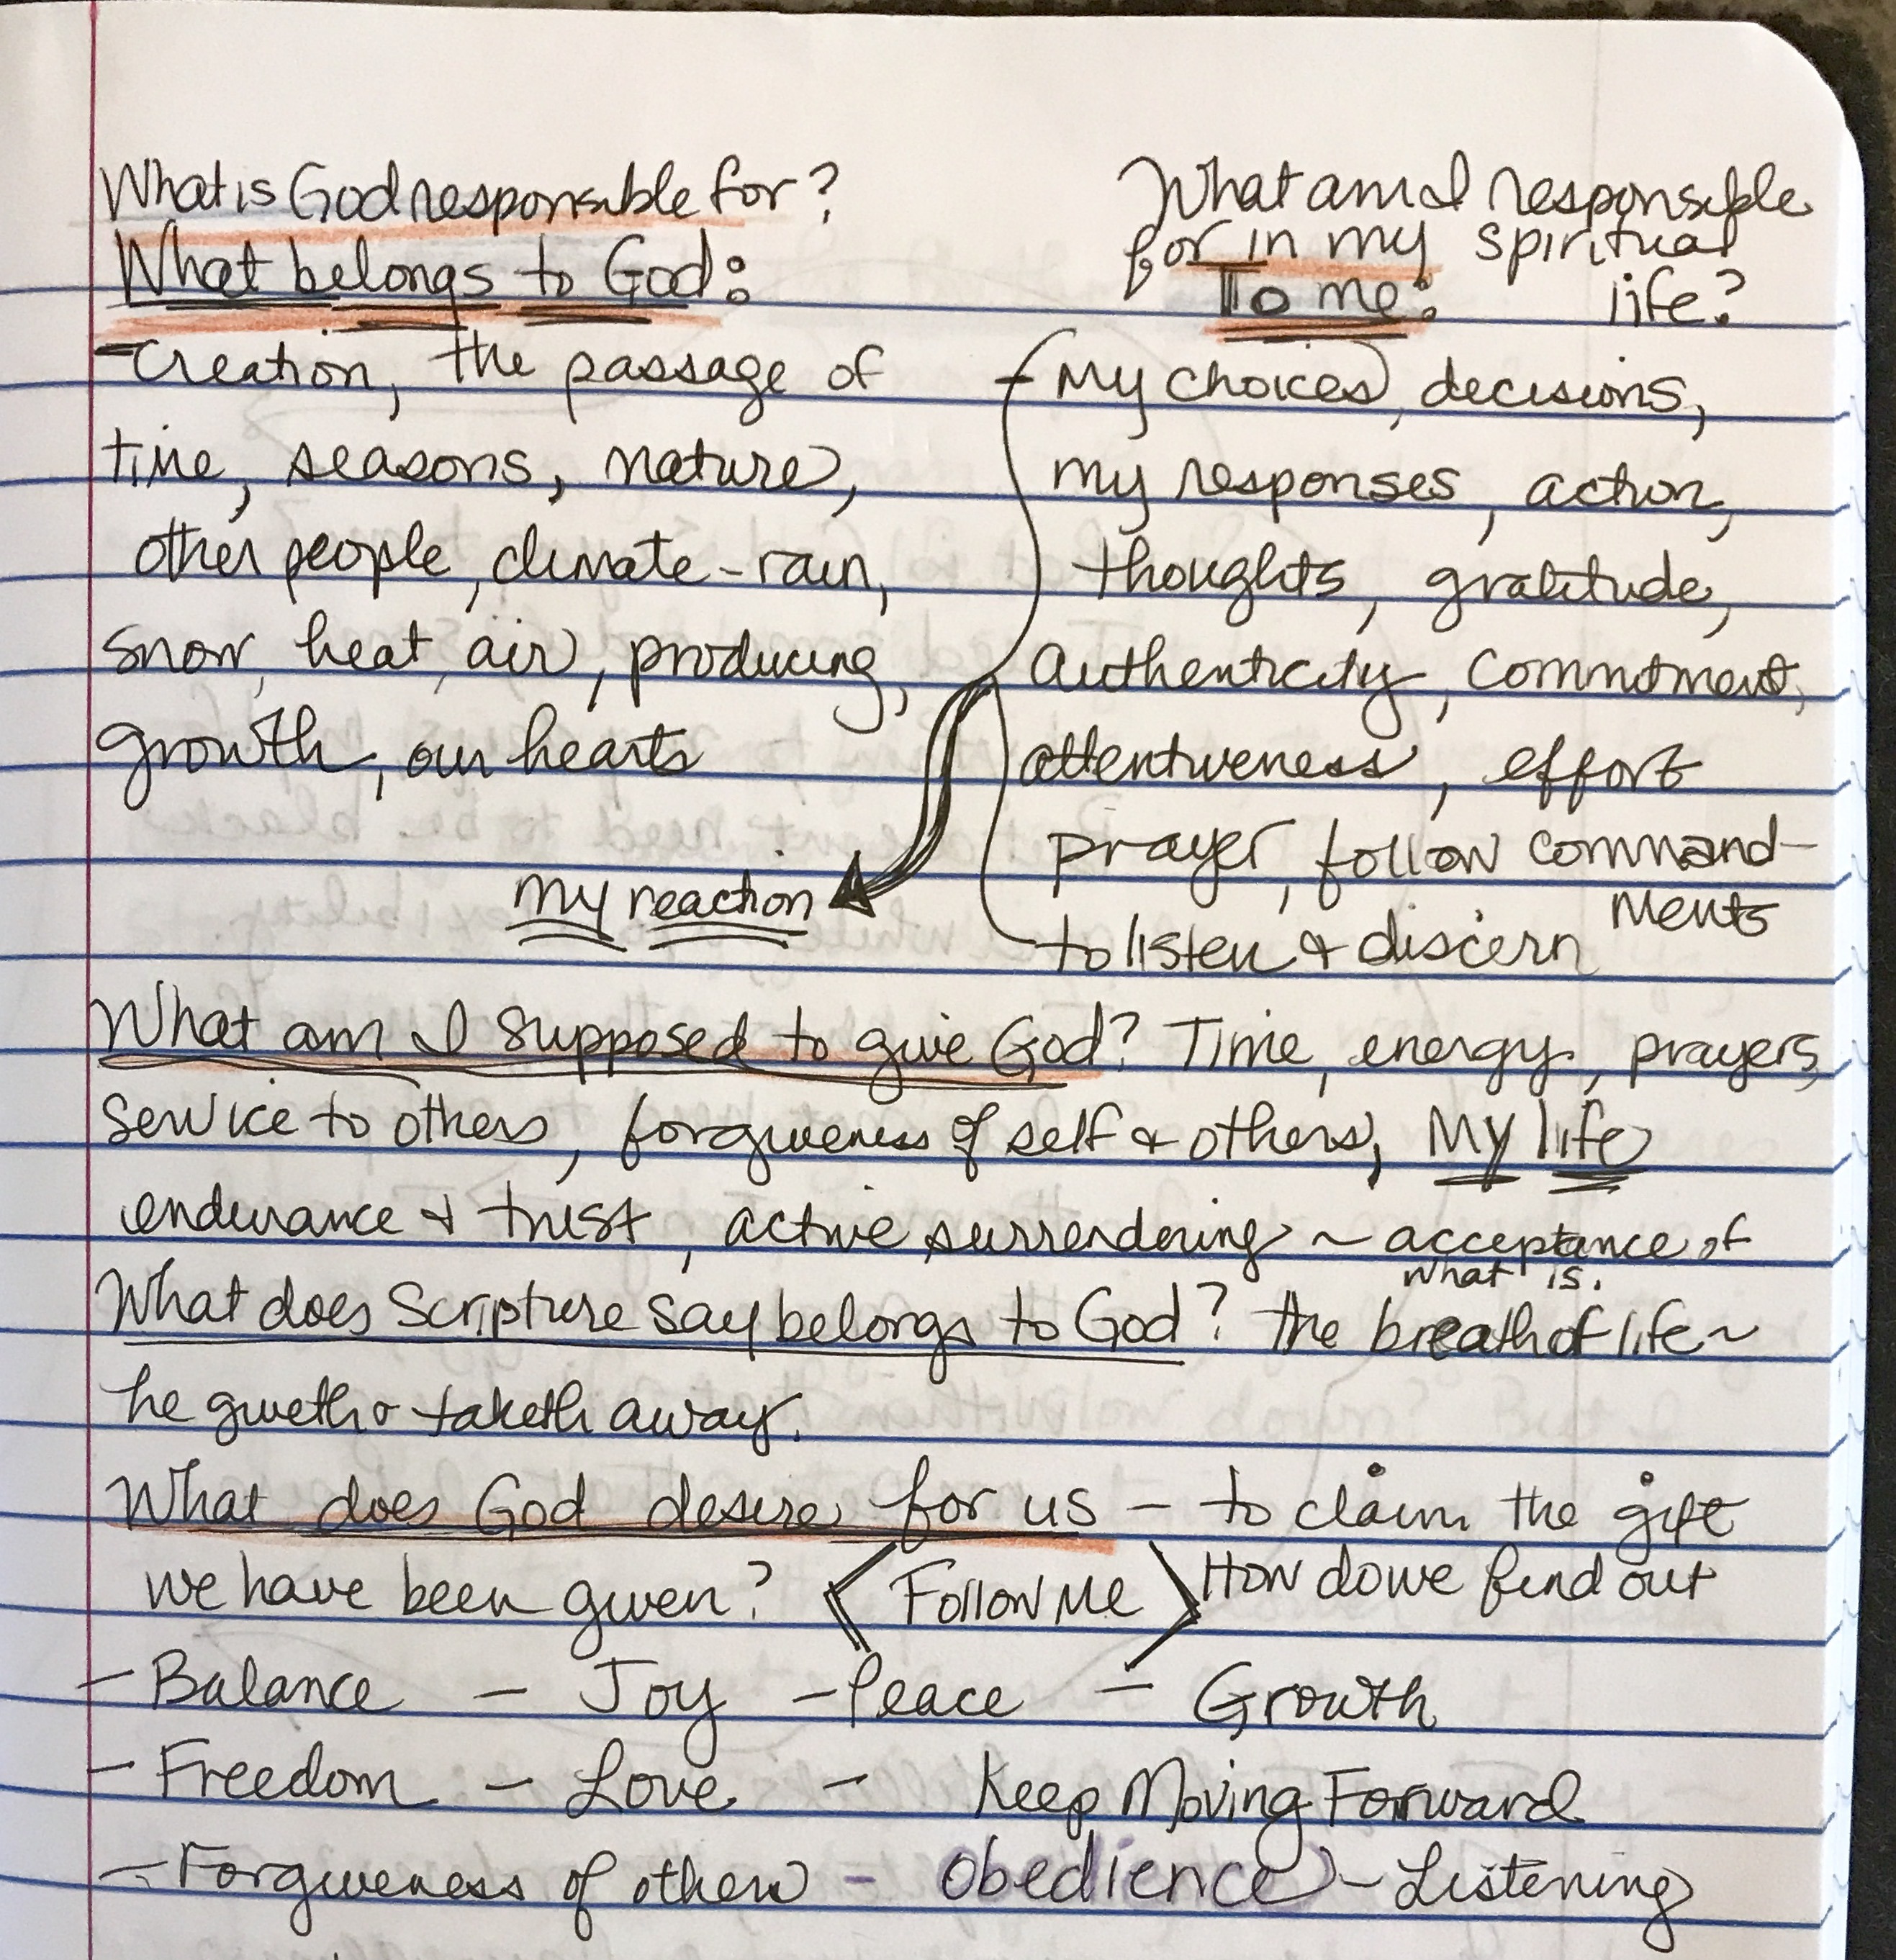 What is God responsible for?
What belongs to God:
- Creation, the passage of
time, seasons, nature,
other people, climate - rain,
snow, heat, air, producing,
growth, our hearts
my reaction
What am I responsible
for in my spiritual
life?
To me:
- My choices, decisions,
my responses, action,
thoughts, gratitude,
authenticity, commitment,
attentiveness, effort
prayer, follow command-
ments
to listen & discern
What am I supposed to give God? Time, energy, prayers,
service to others, forgiveness of self & others, My life
endurance & trust, active surrendering ~ acceptance of
what is.
What does Scripture say belongs to God? the breath of life ~
he giveth & taketh away.
What does God desire for us - to claim the gift
we have been given? < Follow Me > How do we find out
- Balance - Joy - Peace - Growth
- Freedom - Love - Keep Moving Forward
- Forgiveness of others - Obedience - Listening